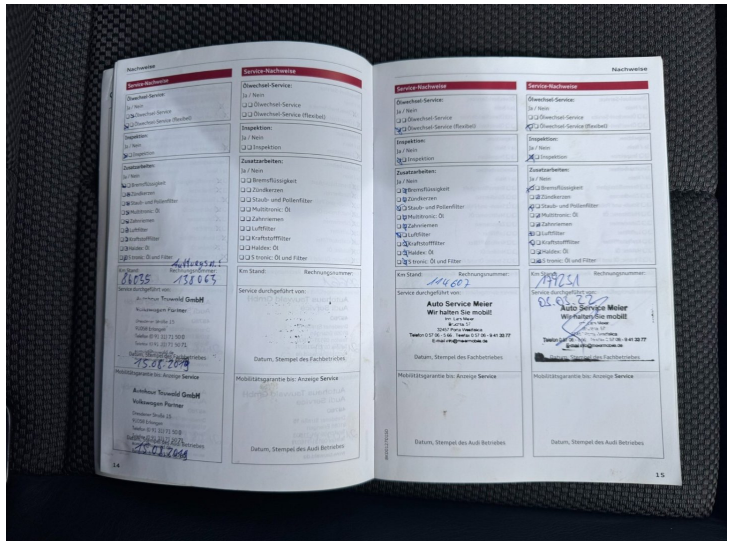 Nachweise
Service-Nachweise
Ölwechsel-Service:
Ja / Nein
Ölwechsel-Service
Ölwechsel-Service (flexibel)
Inspektion:
Ja / Nein
Inspektion
Zusatzarbeiten:
Ja / Nein
Bremsflüssigkeit
Zündkerzen
Staub- und Pollenfilter
Multitronic: Öl
Zahnriemen
Luftfilter
Kraftstofffilter
Haldex: Öl
S tronic: Öl und Filter
Km Stand: Rechnungsnummer:
86035 138063
Service durchgeführt von:
Autohaus Trauwald GmbH
Volkswagen Partner
Datum, Stempel des Fachbetriebes
15.08.2019
Mobilitätsgarantie bis: Anzeige Service
Autohaus Trauwald GmbH
Volkswagen Partner
Datum, Stempel des Audi Betriebes
15.08.2019
14
Service-Nachweise
Ölwechsel-Service:
Ja / Nein
Ölwechsel-Service
Ölwechsel-Service (flexibel)
Inspektion:
Ja / Nein
Inspektion
Zusatzarbeiten:
Ja / Nein
Bremsflüssigkeit
Zündkerzen
Staub- und Pollenfilter
Multitronic: Öl
Zahnriemen
Luftfilter
Kraftstofffilter
Haldex: Öl
S tronic: Öl und Filter
Km Stand: Rechnungsnummer:
Service durchgeführt von:
Datum, Stempel des Fachbetriebes
Mobilitätsgarantie bis: Anzeige Service
Datum, Stempel des Audi Betriebes
Nachweise
Service-Nachweise
Ölwechsel-Service:
Ja / Nein
Ölwechsel-Service
Ölwechsel-Service (flexibel)
Inspektion:
Ja / Nein
Inspektion
Zusatzarbeiten:
Ja / Nein
Bremsflüssigkeit
Zündkerzen
Staub- und Pollenfilter
Multitronic: Öl
Zahnriemen
Luftfilter
Kraftstofffilter
Haldex: Öl
S tronic: Öl und Filter
Km Stand: Rechnungsnummer:
114607
Service durchgeführt von:
Auto Service Meier
Wir halten Sie mobil!
Inh. Lars Meier
32457 Porta Westfalica
Datum, Stempel des Fachbetriebes
Mobilitätsgarantie bis: Anzeige Service
Datum, Stempel des Audi Betriebes
Service-Nachweise
Ölwechsel-Service:
Ja / Nein
Ölwechsel-Service
Ölwechsel-Service (flexibel)
Inspektion:
Ja / Nein
Inspektion
Zusatzarbeiten:
Ja / Nein
Bremsflüssigkeit
Zündkerzen
Staub- und Pollenfilter
Multitronic: Öl
Zahnriemen
Luftfilter
Kraftstofffilter
Haldex: Öl
S tronic: Öl und Filter
Km Stand: Rechnungsnummer:
Service durchgeführt von:
Auto Service Meier
Wir halten Sie mobil!
Datum, Stempel des Fachbetriebes
Mobilitätsgarantie bis: Anzeige Service
Datum, Stempel des Audi Betriebes
15